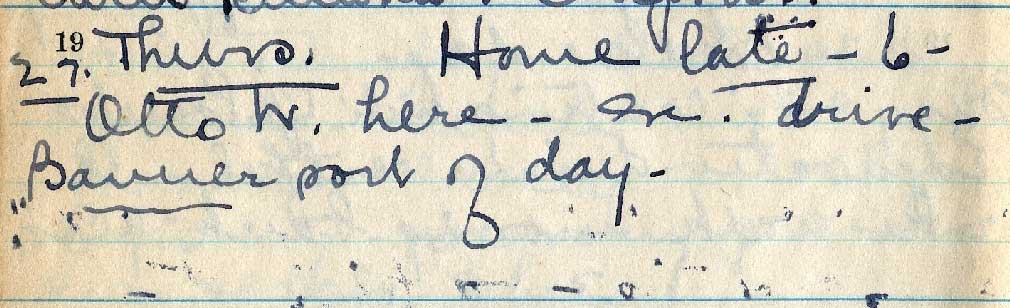 19
27. Thurs. Home late - 6 -
Otto W. here - drive -
Banner part of day -